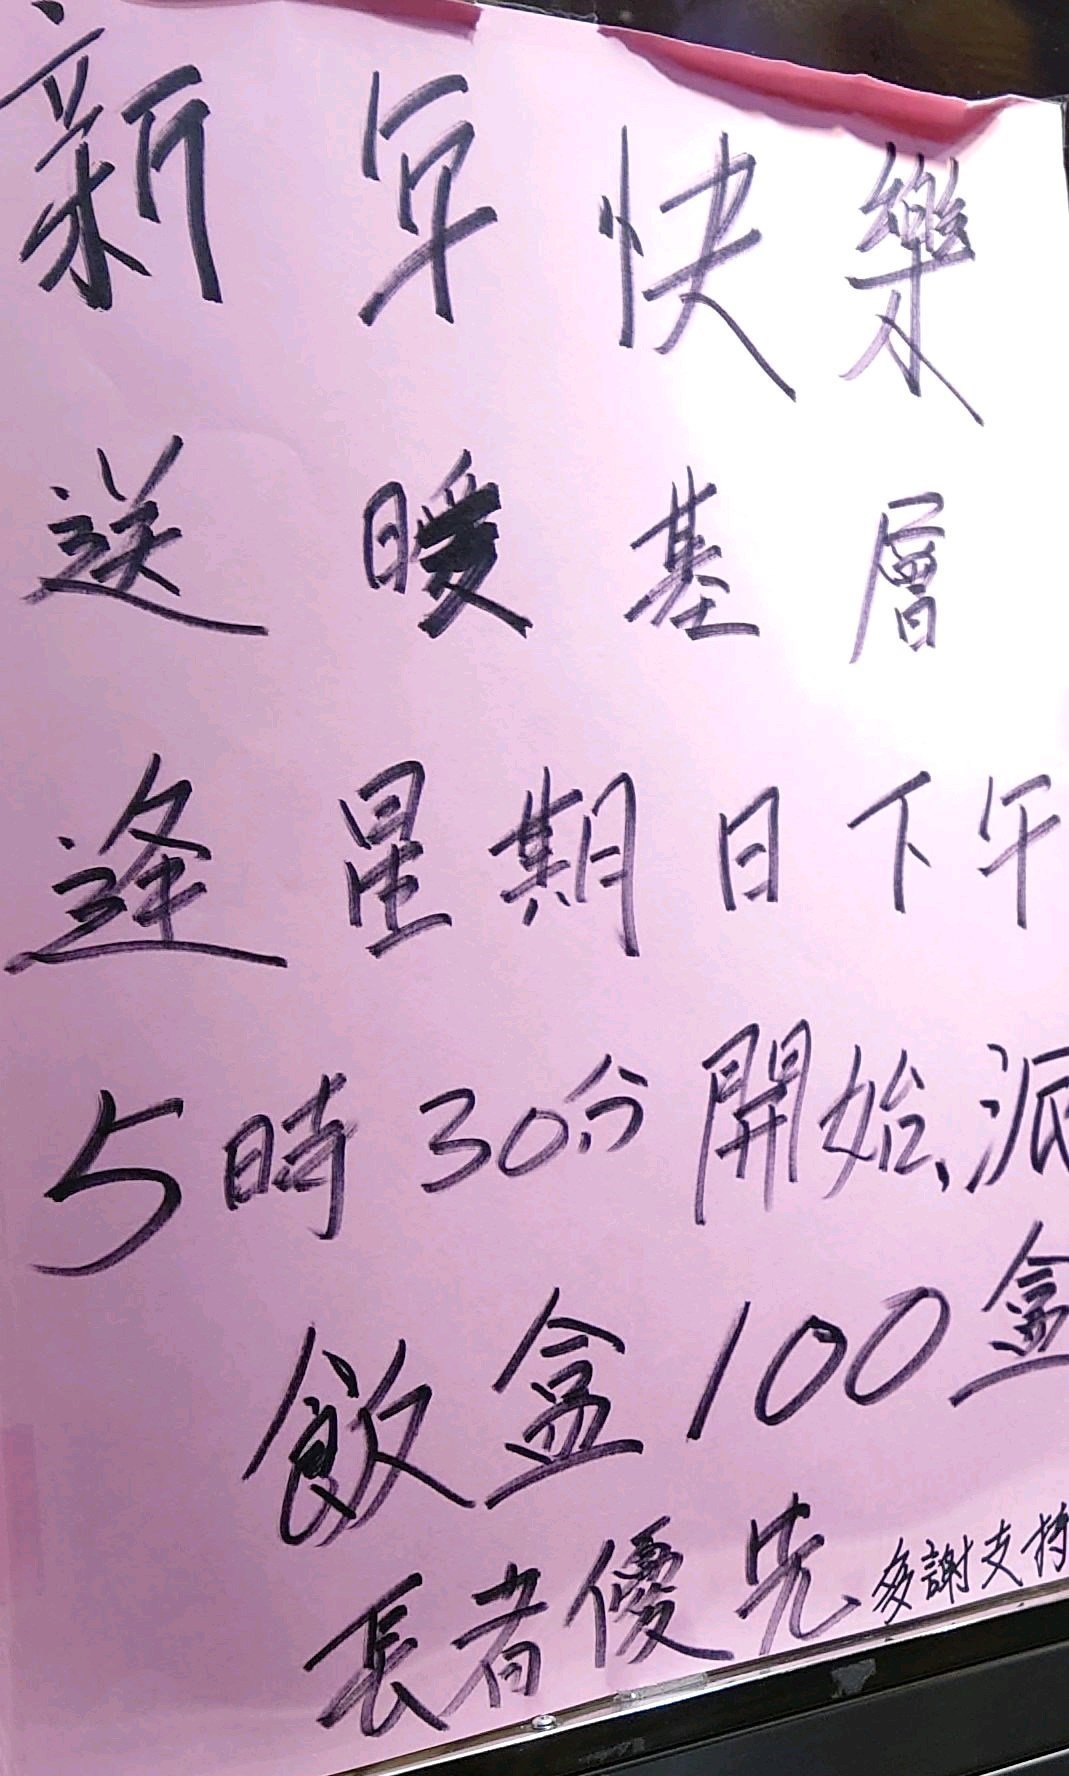 新年快樂
送暖基層
逢星期日下午
5時30分開始、派
飯盒100盒
長者優先 多謝支持